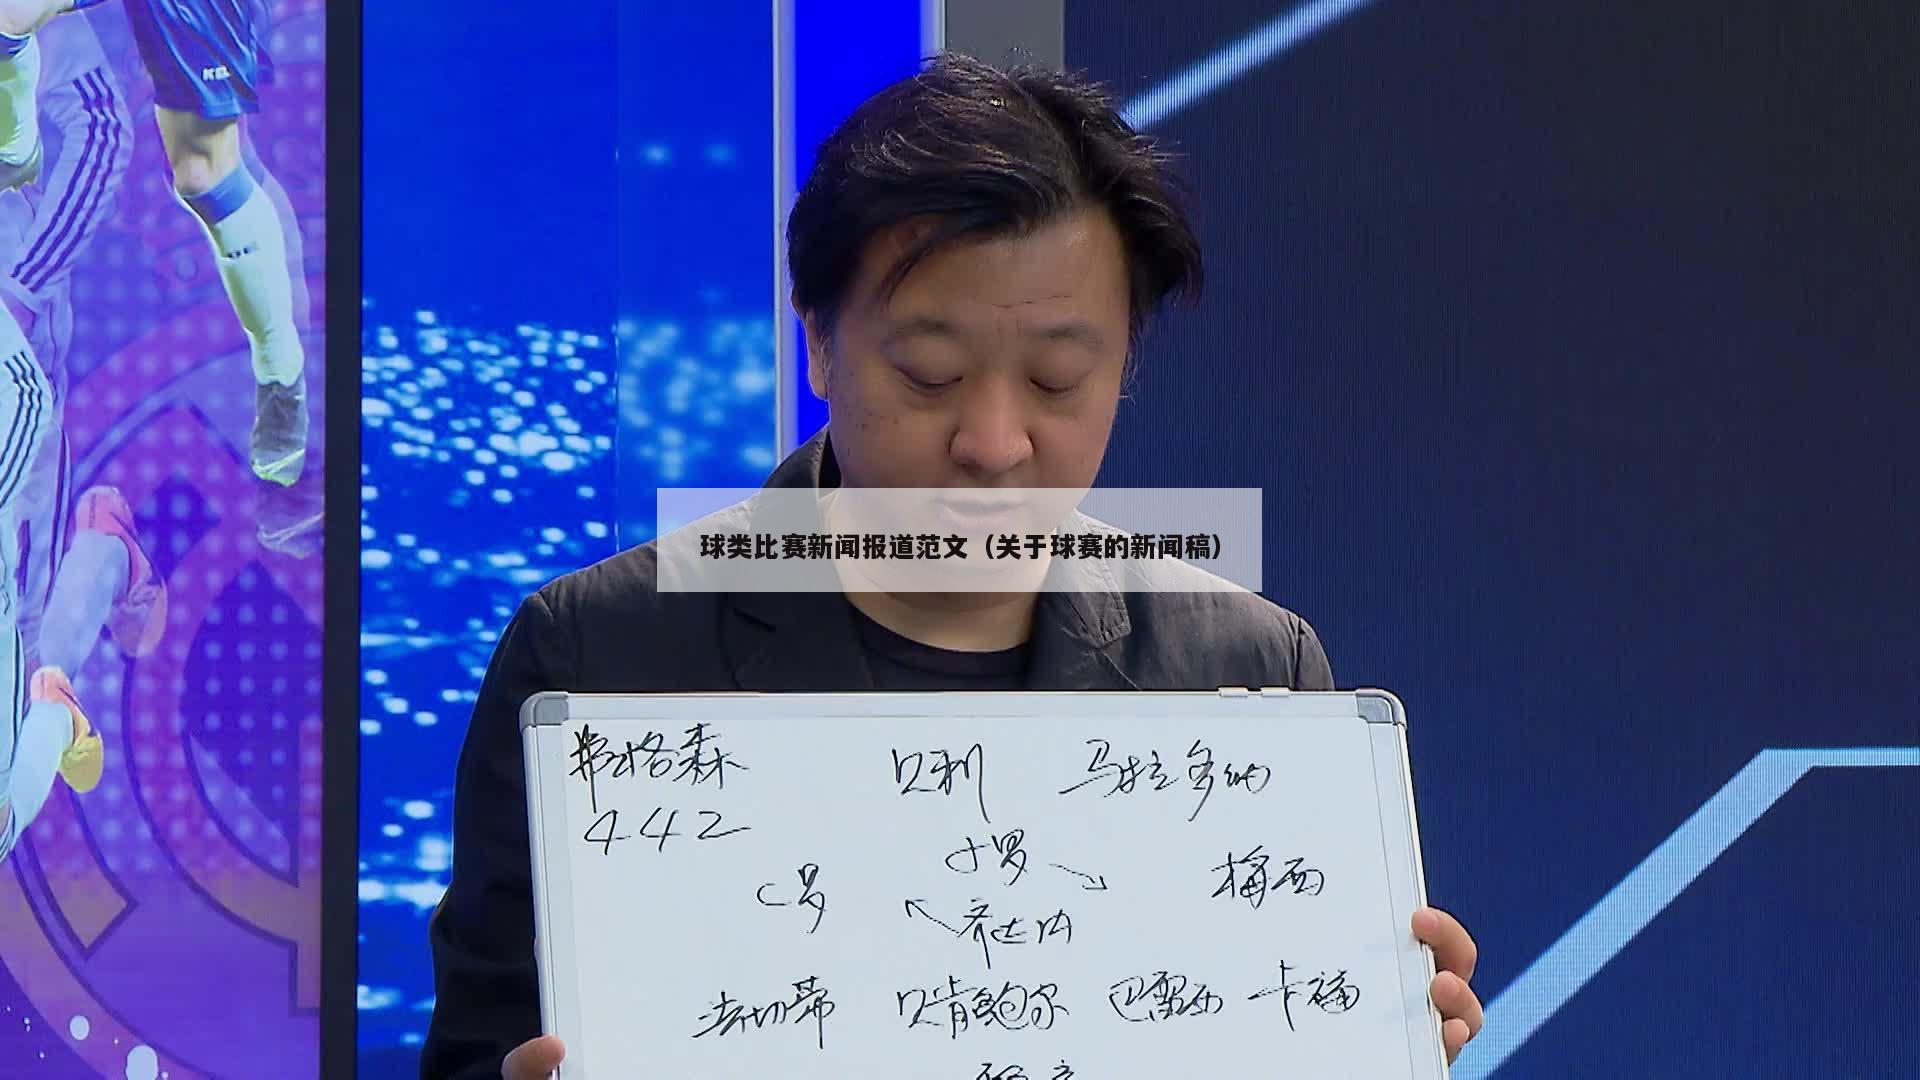 球类比赛新闻报道范文（关于球赛的新闻稿）
弗格森 贝利 马拉多纳
442
小罗
C罗 梅西
齐达内
法切蒂 贝肯鲍尔 巴雷西 卡福